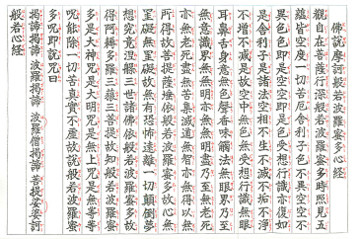 佛說摩訶般若波羅蜜多心經
觀自在菩薩行深般若波羅蜜多時照見五
蘊皆空度一切苦厄舍利子色不異空空不
異色色即是空空即是色受想行識亦復如
是舍利子是諸法空相不生不滅不垢不淨
不增不減是故空中無色無受想行識無眼
耳鼻舌身意無色聲香味觸法無眼界乃至
無意識界無無明亦無無明盡乃至無老死
亦無老死盡無苦集滅道無智亦無得以無
所得故菩提薩埵依般若波羅蜜多故心無
罣礙無罣礙故無有恐怖遠離一切顛倒夢
想究竟涅槃三世諸佛依般若波羅蜜多故
得阿耨多羅三藐三菩提故知般若波羅蜜
多是大神咒是大明咒是無上咒是無等等
咒能除一切苦真實不虛故說般若波羅蜜
多咒即說咒曰
揭諦揭諦 波羅揭諦 波羅僧揭諦 菩提娑婆訶
般若心經